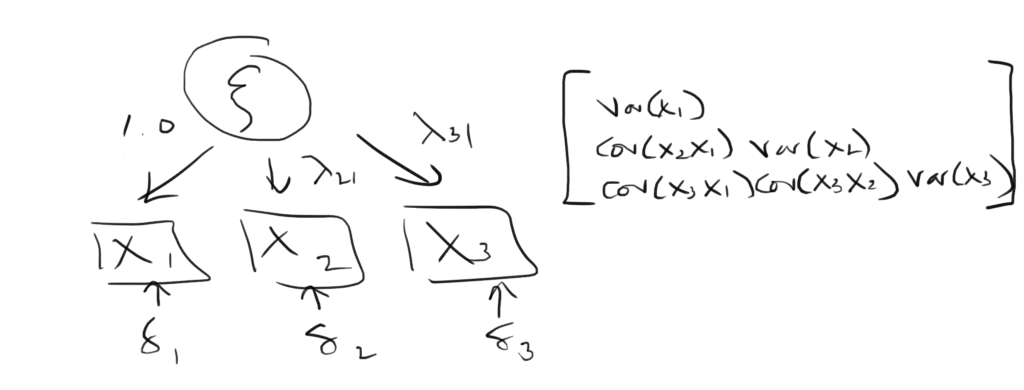 ξ
1.0
λ31
λ21
X1 X2 X3
δ1 δ2 δ3
Var(X1)
Cov(X2X1) Var(X2)
Cov(X3X1) Cov(X3X2) Var(X3)